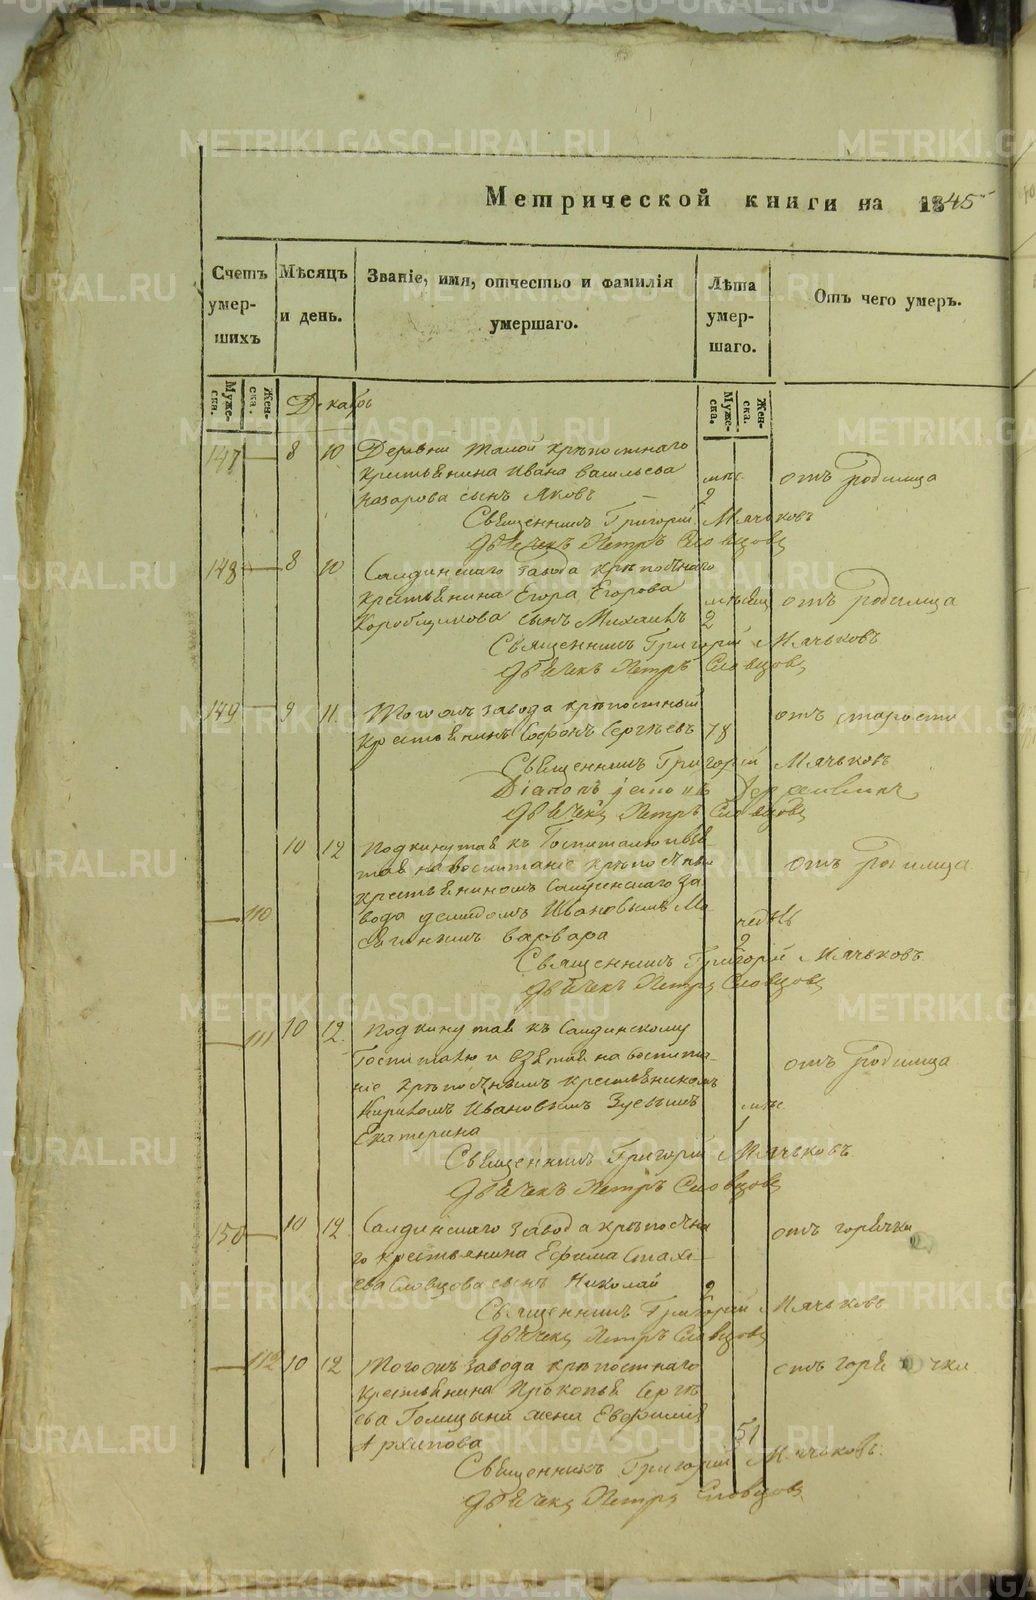 METRIKI.GASO-URAL.RU
Метрической книги на 1845
Счетъ умер-шихъ
Мѣсяцъ и день.
Званіе, имя, отчество и фамилія умершаго.
Лѣта умер-шаго.
Отъ чего умеръ.
Муже-ска. Жен-ска.
Муже-ска. Жен-ска.
Декабрь
147 — 8 10 Деревни Талой крѣпостнаго
крестьянина Ивана Васильева мѣс. отъ родимца
Назарова сынъ Яковъ — 2
Священникъ Григорій Мячьковъ
Дьячекъ Петръ Словцовъ
148 — 8 10 Салдинскаго завода крѣпостнаго
крестьянина Егора Егорова мѣсяц отъ родимца
Коробщикова сынъ Михаилъ 2
Священникъ Григорій Мячьковъ
Дьячекъ Петръ Словцовъ
149 — 9 11 Тогожъ завода крѣпостный отъ старости
крестьянинъ Софонъ Сергѣевъ 78
Священникъ Григорій Мячьковъ
Діаконъ
Дьячекъ Петръ Словцовъ
10 12 Подкинутая къ Госпиталю и взя
тая на воспитаніе крѣпостнымъ отъ родимца
крестьяниномъ Салдинскаго за
— 110 вода Демидомъ Ивановымъ недѣль
Варвара 2
Священникъ Григорій Мячьковъ
Дьячекъ Петръ Словцовъ
— 111 10 12 Подкинутая къ Салдинскому
Госпиталю и взятая на воспита- отъ родимца
ніе крѣпостнымъ крестьяниномъ
Кириломъ Ивановымъ Зуевымъ мѣс.
Екатерина 1
Священникъ Григорій Мячьковъ
Дьячекъ Петръ Словцовъ
150 — 10 12 Салдинскаго завода крѣпостна отъ горячки
го крестьянина Ефима Стахе-
ева Словцова сынъ Николай 2
Священникъ Григорій Мячьковъ
Дьячекъ Петръ Словцовъ
— 112 10 12 Тогожъ завода крѣпостнаго отъ горячки
крестьянина Прокопья Сергѣ
ева Голицына жена Евфимия
Архипова 51
Священникъ Григорій Мячьковъ
Дьячекъ Петръ Словцовъ